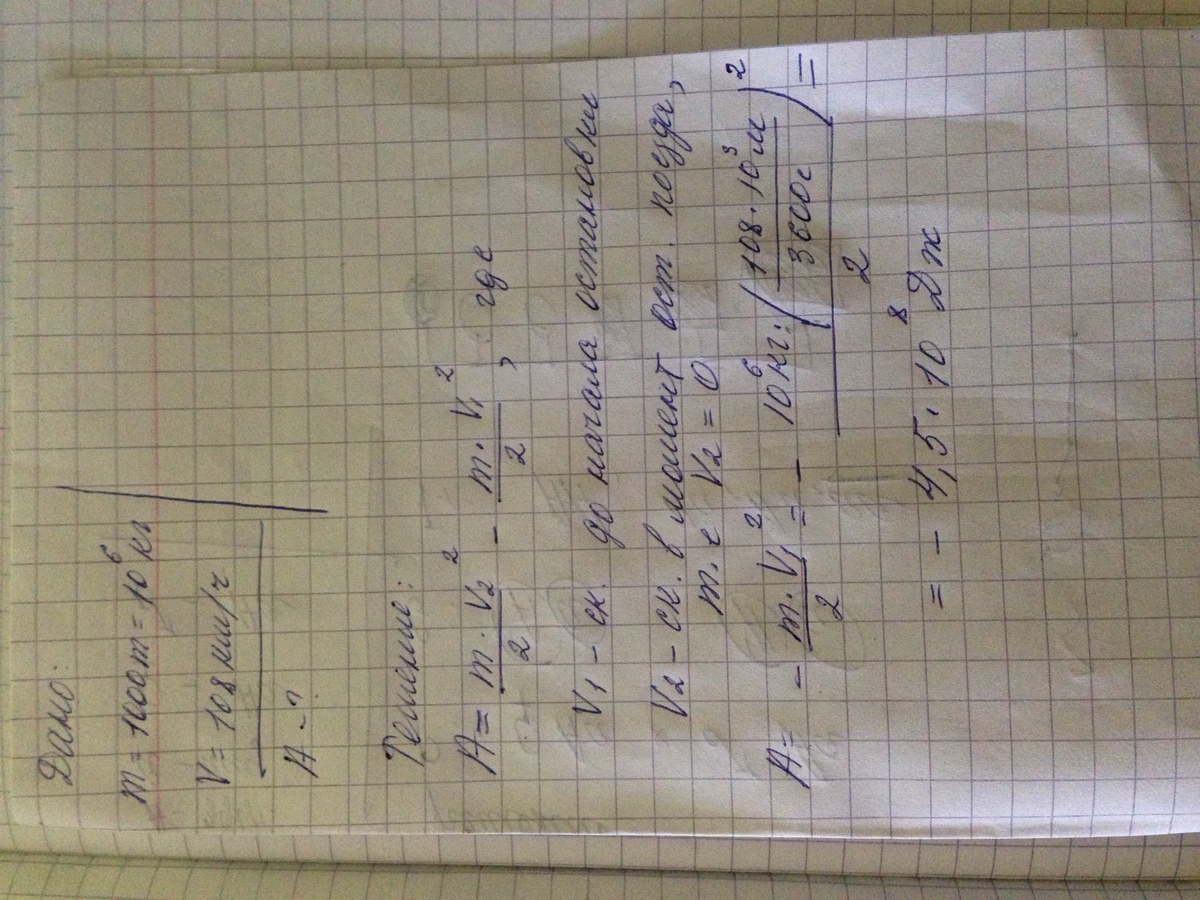 Дано:
m = 1000т = 10⁶ кг
V = 108 км/ч
A - ?
Решение:
A = m · V₂² / 2 - m · V₁² / 2 , где
V₁ - ск. до начала остановки
V₂ - ск. в момент ост. поезда,
т. е V₂ = 0
A = - m · V₁² / 2 = - 10⁶ кг · (108 · 10³ м / 3600 с)² / 2 =
= - 4,5 · 10⁸ Дж